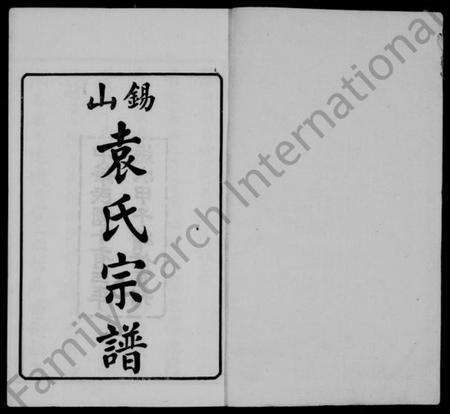 錫山
袁氏宗譜
FamilySearch International